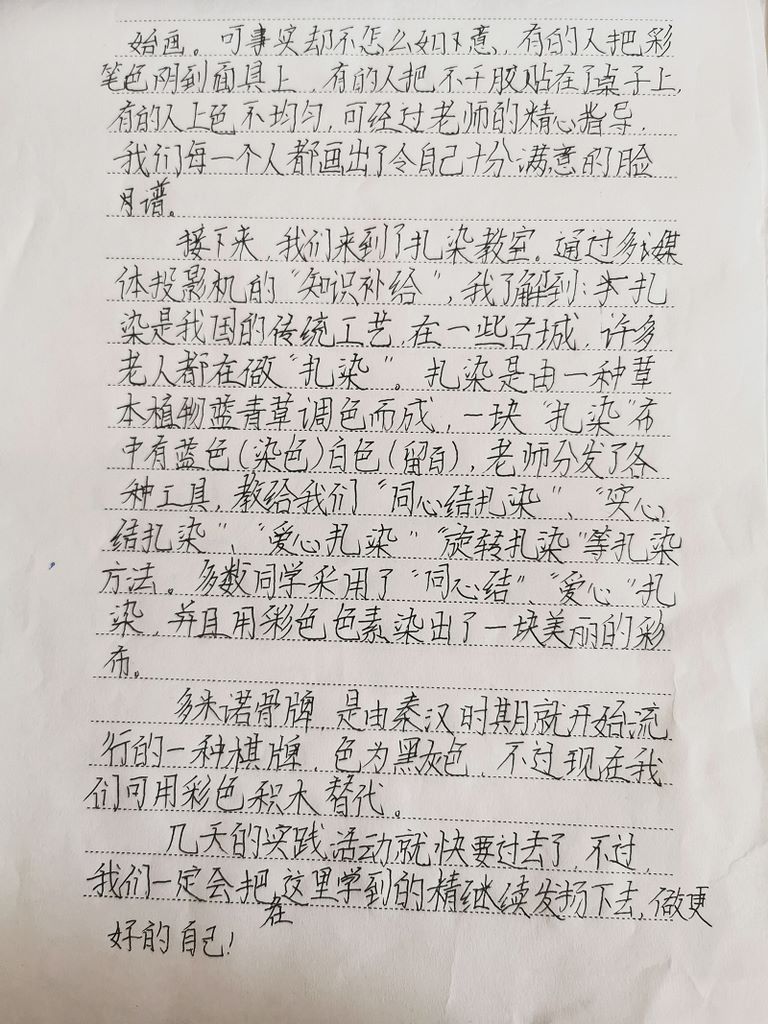 始画。可事实却不怎么如人意,有的人把彩
笔色阴到面具上,有的人把不干胶贴在了桌子上,
有的人上色不均匀,可经过老师的精心指导,
我们每一个人都画出了令自己十分满意的脸
谱。
接下来,我们来到了扎染教室。通过多媒
体投影机的“知识补给”,我了解到:扎
染是我国的传统工艺,在一些古城,许多
老人都在做“扎染”。扎染是由一种草
本植物蓝青草调色而成,一块“扎染”布
中有蓝色(染色)白色(留白),老师分发了各
种工具,教给我们“同心结扎染”、“实心
结扎染”、“爱心扎染”“旋转扎染”等扎染
方法。多数同学采用了“同心结”“爱心”扎
染,并且用彩色色素染出了一块美丽的彩
布。
多米诺骨牌,是由秦汉时期就开始流
行的一种棋牌,色为黑灰色,不过现在我
们可用彩色积木替代。
几天的实践活动就快要过去了,不过,
我们一定会把在这里学到的精继续发扬下去,做更
好的自己!